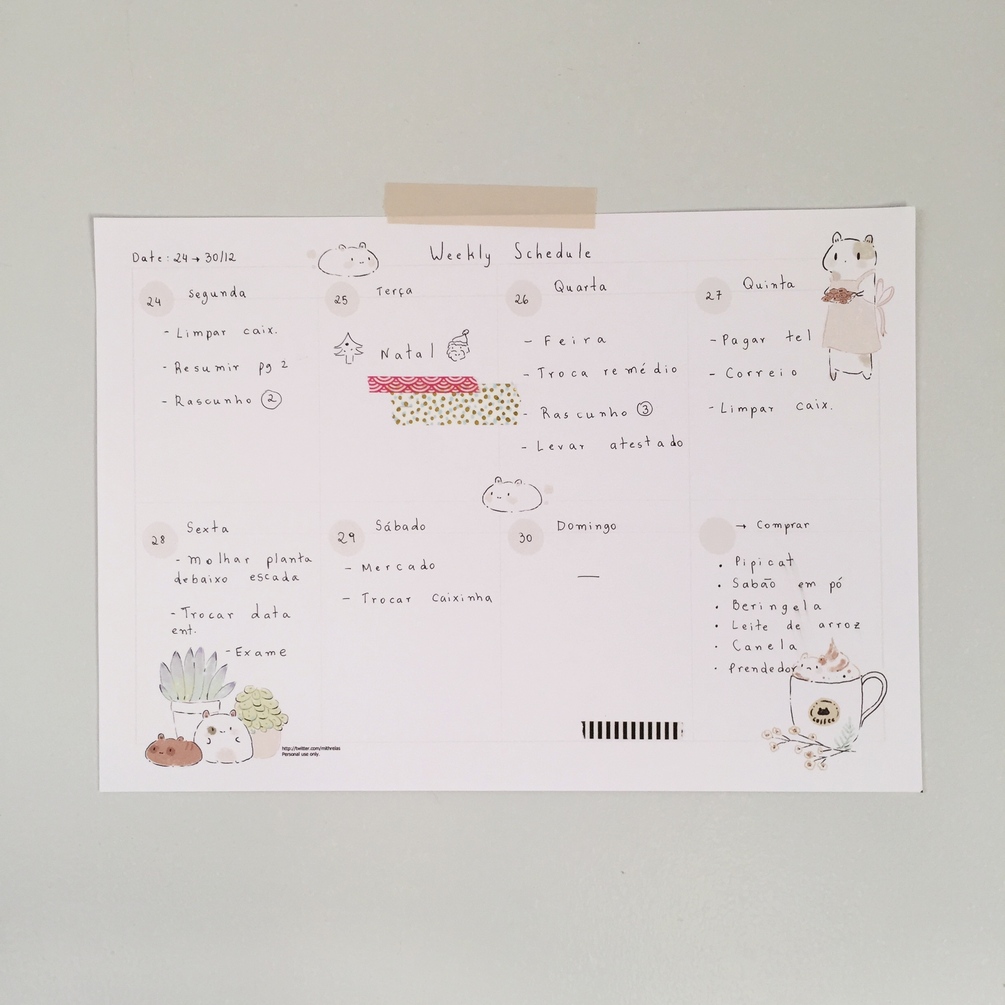 Date: 24 → 30/12
Weekly Schedule
24 Segunda
- Limpar caix.
- Resumir pg 2
- Rascunho ②
25 Terça
Natal
26 Quarta
- Feira
- Troca remédio
- Rascunho ③
- Levar atestado
27 Quinta
- Pagar tel
- Correio
- Limpar caix.
28 Sexta
- Molhar planta
debaixo escada
- Trocar data
ent.
- Exame
29 Sábado
- Mercado
- Trocar Caixinha
30 Domingo
—
→ Comprar
• Pipicat
• Sabão em pó
• Beringela
• Leite de arroz
• Canela
• Prendedor
COFFEE
http://twitter.com/mithrelas
Personal use only.